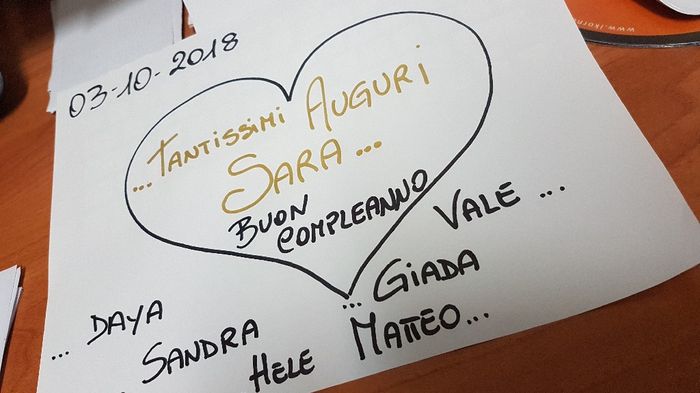 03-10-2018
...TANTISSIMI AUGURI
SARA...
BUON
COMPLEANNO
VALE...
...GIADA
... DAYA
SANDRA
HELE MATTEO...